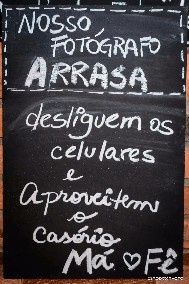 NOSSO
FOTÓGRAFO
ARRASA
desliguem os
celulares
e
Aproveitem
o
Casório
Má ♡ Fê